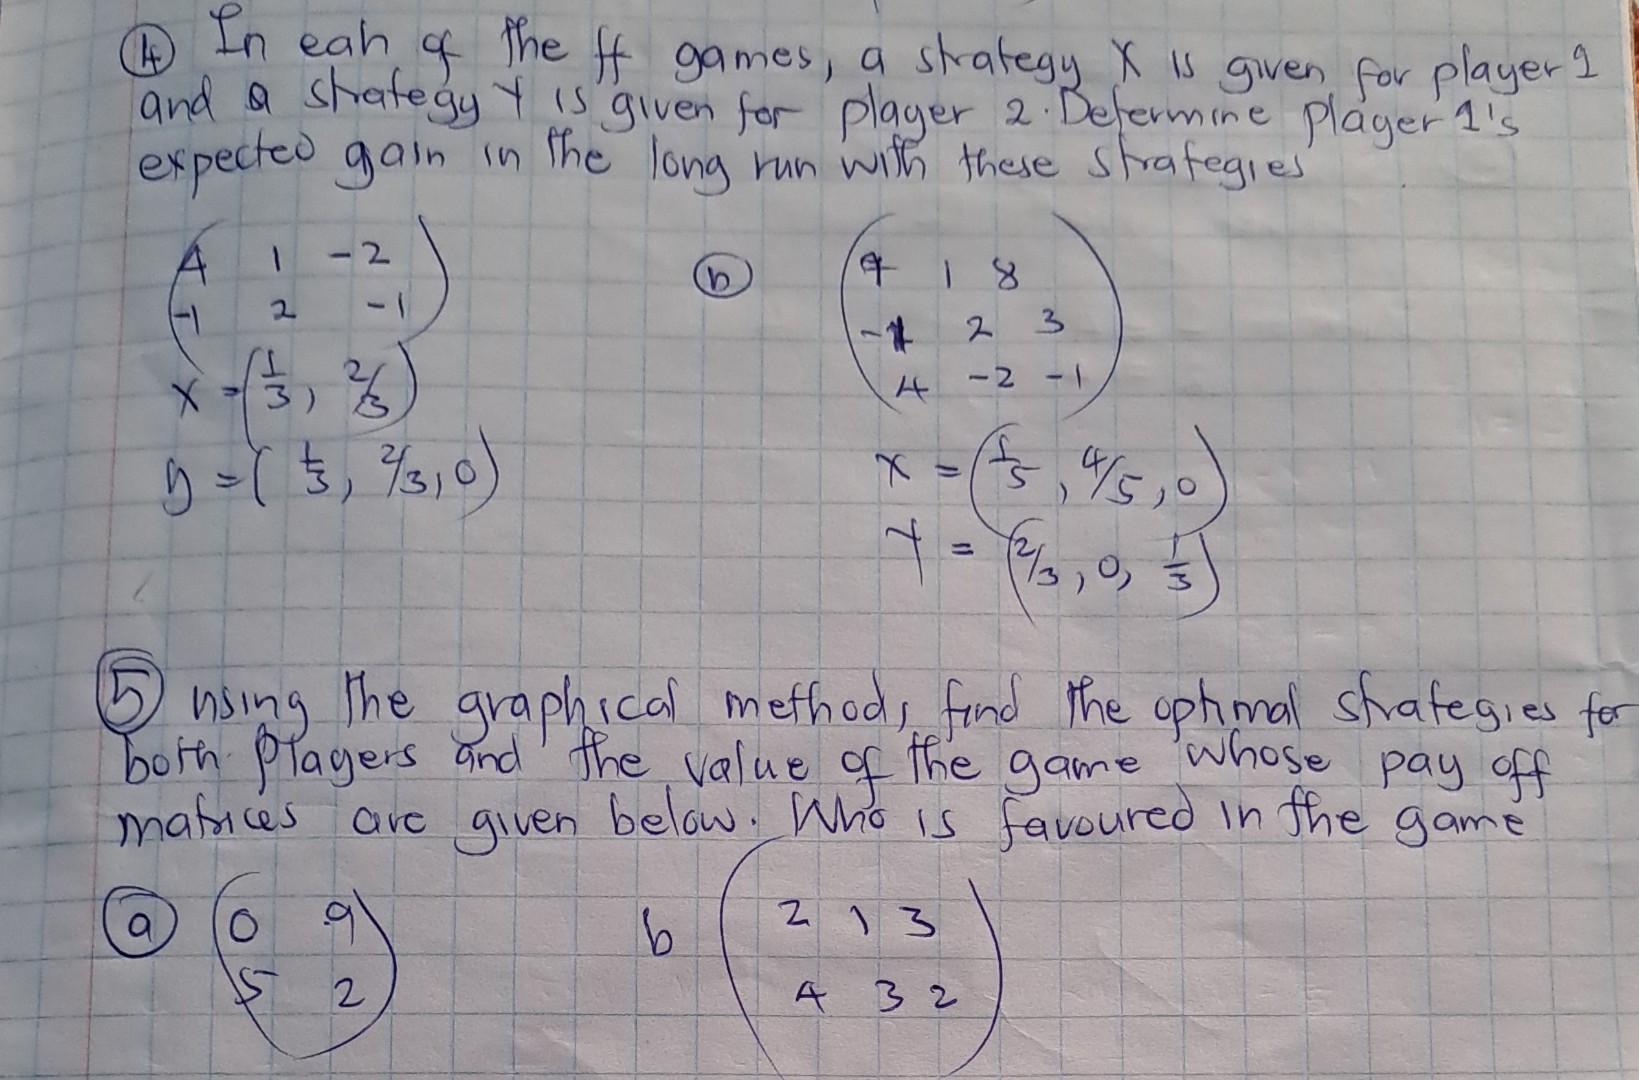 ④ In eah of the ff games, a strategy X is given for player 1
and a strategy Y is given for player 2. Determine player 1's
expected gain in the long run with these strategies
4 1 -2
-1 2 -1
x = (1/3, 2/3)
y = (1/3, 2/3, 0)
ⓑ
1 8
2 3
4 -2 -1
x = (1/5, 4/5, 0)
Y = (2/3, 0, 1/3)
⑤ using the graphical methods, find the optimal strategies for
both players and the value of the game whose pay off
matrices are given below. Who is favoured in the game
ⓐ 0 9
5 2
b 2 1 3
4 3 2